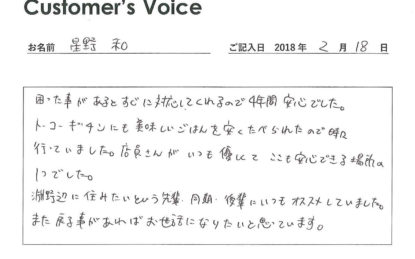 Customer's Voice
お名前 星野 和 ご記入日 2018 年 2 月 18 日
困った事があるとすぐに対応してくれるので4年間安心でした。
トーコーキッチンにも美味しいごはんを安くたべられたので時々
行っていました。店員さんがいつも優しくて ここも安心できる場所の
1つでした。
淵野辺に住みたいという先輩・同期・後輩にいつもオススメしていました。
また戻る事があればお世話になりたいと思っています。